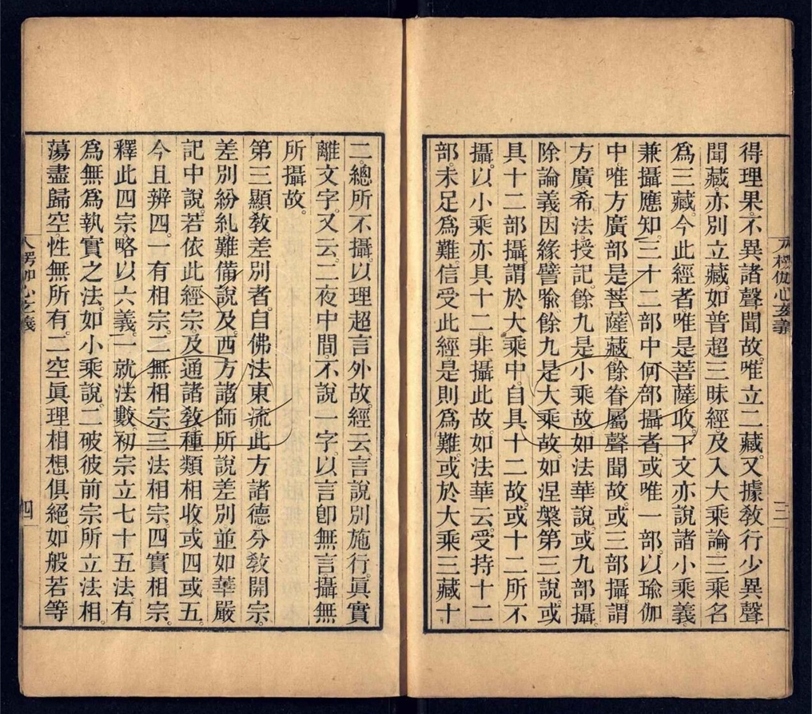 得理果。不異諸聲聞故。唯立二藏。又據教行少異。聲
聞藏亦別立藏。如普超三昧經。及入大乘論三乘名
為三藏。今此經者唯是菩薩收。下文亦說諸小乘義。
兼攝應知。三十二部中何部攝者。或唯一部。以瑜伽
中唯方廣部是菩薩藏。餘眷屬聲聞故。或三部攝。謂
方廣希法授記。餘九是小乘故。如法華說。或九部攝。
除論義因緣譬喩。餘九是大乘故。如涅槃第三說。或
具十二部攝。謂於大乘中。自具十二故。或十二所不
攝。以小乘亦具十二非攝此故。如法華云。受持十二
部未足為難。信受此經是則為難。或於大乘三藏十
二總所不攝。以理超言外故。經云。言說別施行。眞實
離文字。又云。二夜中間不說一字。以言卽無言攝無
所攝故。
第三顯教差別者。自佛法東流此方諸德分教開宗。
差別紛糺。難備說及。西方諸師所說差別。並如華嚴
記中說。若依此經宗及通諸教種類相收。或四或五。
今且辨四。一有相宗。二無相宗。三法相宗。四實相宗。
釋此四宗略以六義。一就法數。初宗立七十五法有
為無為執實之法。如小乘說。二破彼前宗所立法相。
蕩盡歸空性無所有。二空眞理相想俱絕。如般若等
入楞伽心玄義
四